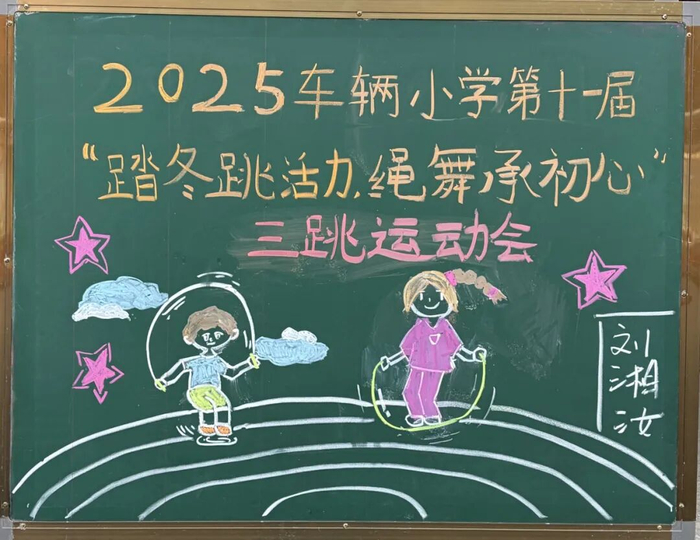 2025车辆小学第十一届
“踏冬跳活力,绳舞承初心”
三跳运动会
刘
湘
汝